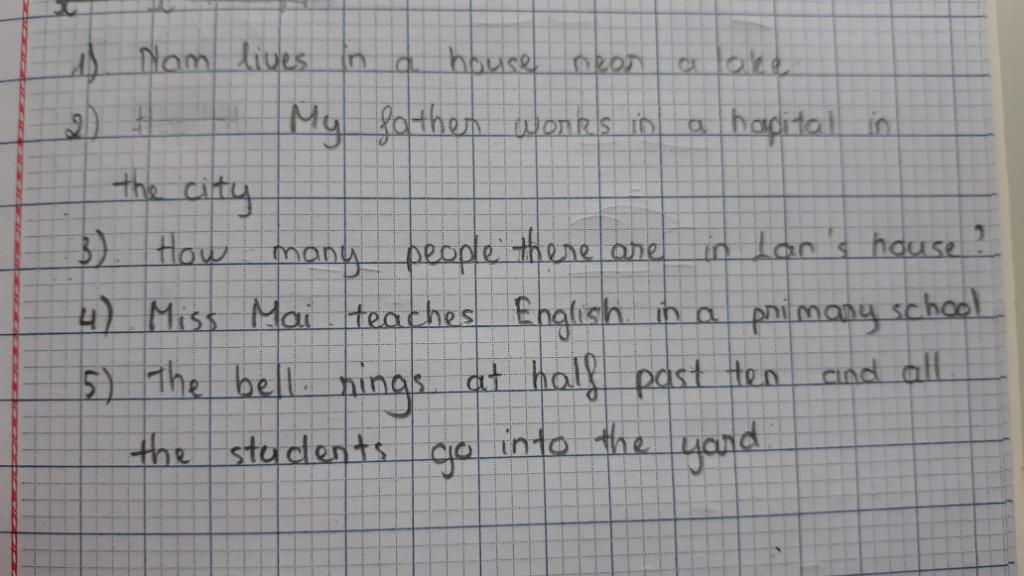 1) Nam lives in a house near a lake
2) My father works in a hapital in
the city
3) How many people there are in Lan's house?
4) Miss Mai teaches English in a primary school
5) The bell rings at half past ten and all
the students go into the yard